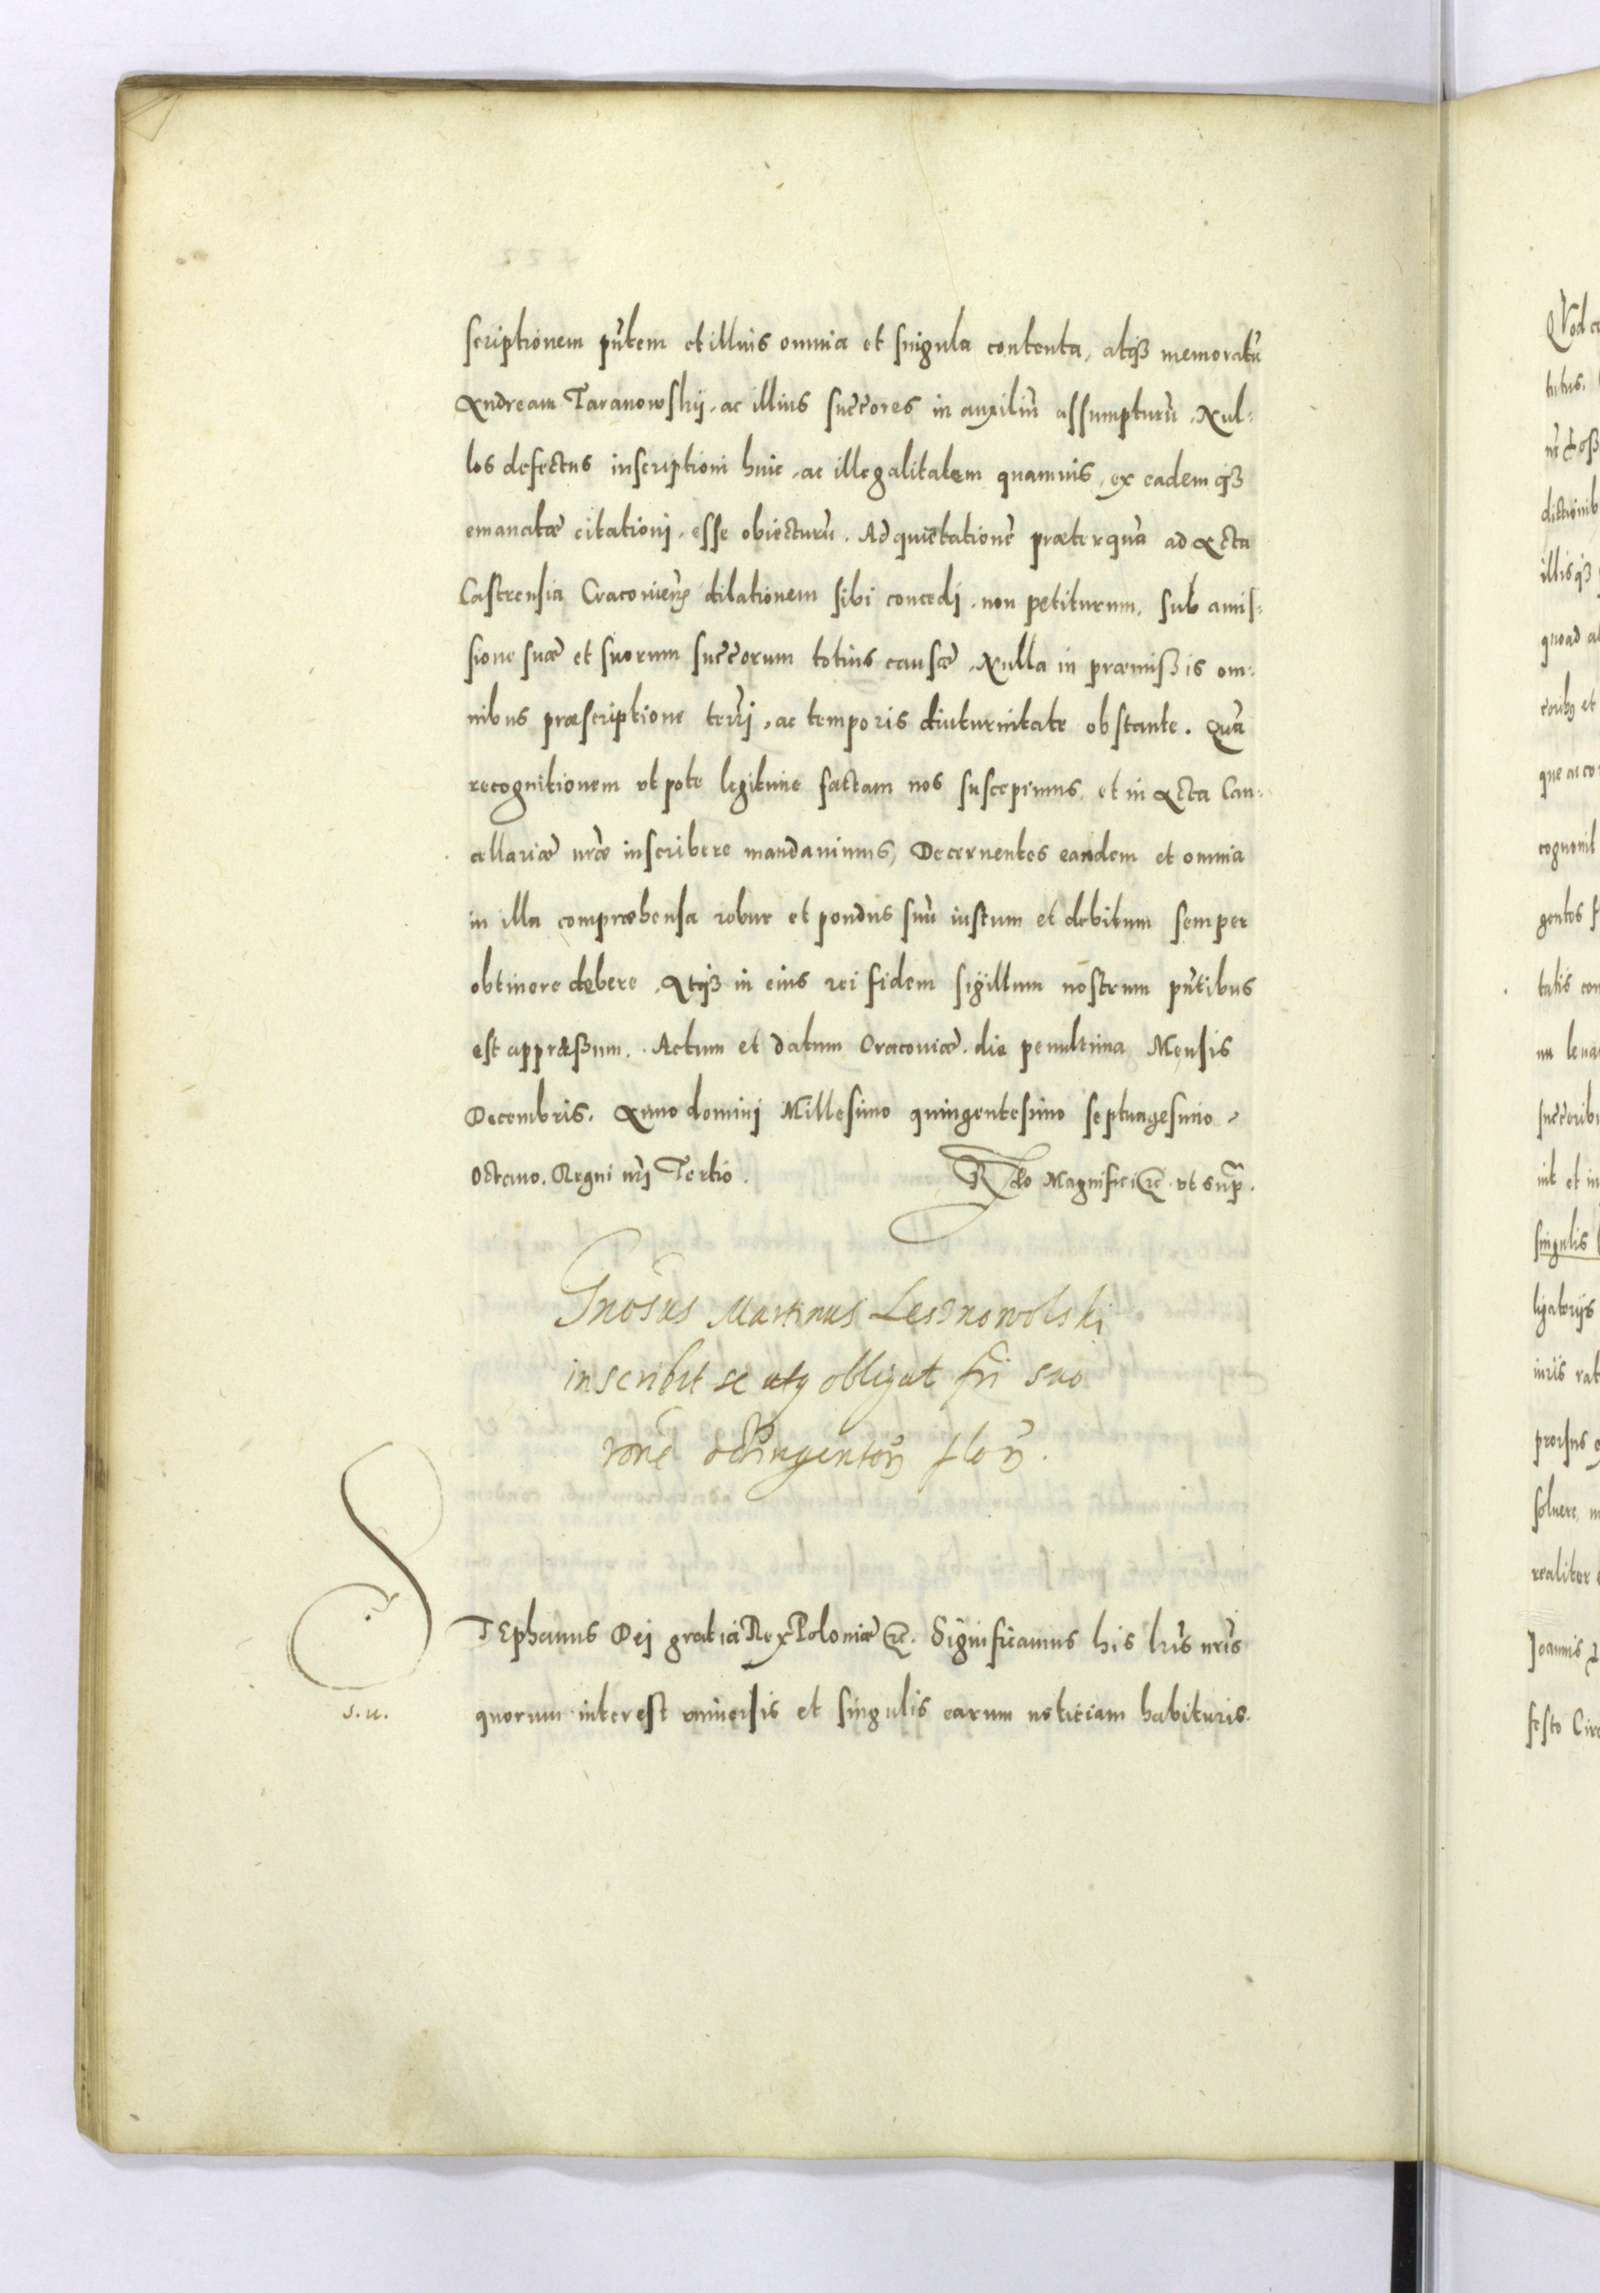 scriptionem pñtem et illius omnia et singula contenta, atqꝫ memoratũ
Andream Taranowskij, ac illius succ̃ores in auxiliũ assumpturũ, Nul-
los defectus inscriptioni huic, ac illegalitatem quamuis, ex eademqꝫ
emanatæ citationi, esse obiecturũ. Ad quietationẽ præterquã ad Acta
Castrensia Cracovieñ dilationem sibi concedi, non petiturum, sub amis-
sione suæ et suorum succ̃orum totius causæ, Nulla in præmißis om-
nibus præscriptione terr̃i, ac temporis diuturnitate obstante. Quã
recognitionem utpote legitime factam nos suscepimus, et in Acta Can-
cellariæ nr̃æ inscribere mandauimus, Decernentes eandem et omnia
in illa compræhensa robur et pondus suũ iustum et debitum semper
obtinere debere, Atqꝫ in eius rei fidem sigillum nostrum pñtibus
est appræßum. Actum et datum Cracoviæ die penultima Mensis
Decembris. Anno domini Millesimo quingentesimo septuagesimo
Octavo. Regni nr̃i Tertio. Rel̃o Magnifici etc. ut supr̃.
Gnosus Martinus Lesnowolski
inscribit se atq obligat fr̃i suo
rõne octingentor̃ flor̃.
STEphanus Dei gratia Rex Poloniæ etc. Significamus his lr̃is nr̃is
s.u. quorum interest vniuersis et singulis earum noticiam habituris.
QVod
titus.
dictionib
illisqꝫ
quoad
que ac co
cognouit
gentes
tatis con
succ̃orib
nit et in
singulis
ligatorijs
iuris rat
prorsus
soluere,
realiter
Joannis
festo Circ